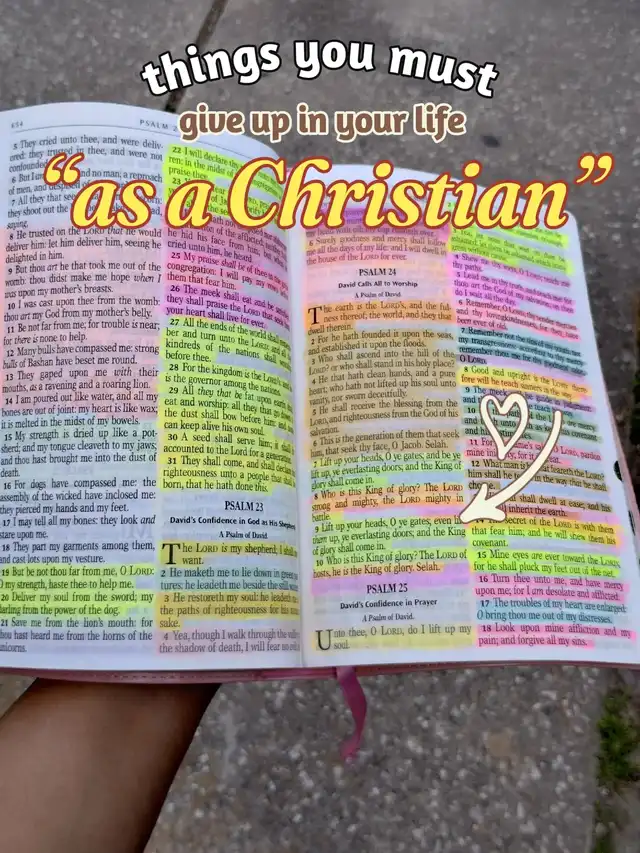 things you must
give up in your life
"as a Christian"
654
PSALM
5 They cried unto thee, and were deliv-
ered: they trusted in thee, and were not
confounded.
6 But I
and no man; a reproach
of men, and
7 All they that see
they shoot out the
saying,
8 He trusted on the LORD that he would
deliver him: let him deliver him, seeing he
delighted in him.
9 But thou art he that took me out of the
womb: thou didst make me hope when I
was upon my mother's breasts.
10 I was cast upon thee from the womb:
thou art my God from my mother's belly.
11 Be not far from me; for trouble is near;
for there is none to help.
12 Many bulls have compassed me: strong
bulls of Bashan have beset me round.
13 They gaped upon me with their
mouths, as a ravening and a roaring lion.
14 I am poured out like water, and all my
bones are out of joint: my heart is like wax;
it is melted in the midst of my bowels.
15 My strength is dried up like a pot-
sherd; and my tongue cleaveth to my jaws;
and thou hast brought me into the dust of
death.
16 For dogs have compassed me: the
assembly of the wicked have inclosed me:
they pierced my hands and my feet.
17 I may tell all my bones: they look and
stare upon me.
18 They part my garments among them,
and cast lots upon my vesture.
19 But be not thou far from me, O LORD:
O my strength, haste thee to help me.
20 Deliver my soul from the sword; my
darling from the power of the dog.
21 Save me from the lion's mouth: for
thou hast heard me from the horns of the
unicorns.
22 I will declare
ren: in the midst of
praise thee.
23
of the afflicted;
he hid his face from him; but
cried unto him, he heard.
25 My praise shall be of thee in the
congregation: I will pay my
them that fear him.
26 The meek shall eat and be
they shall praise the LORD that
your heart shall live for ever.
27 All the ends of the world shall
ber and turn unto the LORD: and
kindreds of the nations shall
before thee.
28 For the kingdom is the LORD's:
is the governor among the nations.
29 All they that be fat upon
eat and worship: all they that go
the dust shall bow before him: and
can keep alive his own soul.
30 A seed shall serve him; it
accounted to the Lord for a
31 They shall come, and shall
righteousness unto a people that
born, that he hath done this.
PSALM 23
David's Confidence in God as His Shepherd
A Psalm of David.
The LORD is my shepherd; I
want.
2 He maketh me to lie down in
tures: he leadeth me beside the still
3 He restoreth my soul: he leadeth
the paths of righteousness for his
sake.
4 Yea, though I walk through the
the shadow of death, I will fear no
6 Surely goodness and mercy shall follow
all the days of my life: and I will dwell in
the house of the LORD for ever.
PSALM 24
David Calls All to Worship
A Psalm of David.
The earth is the LORD's, and the ful-
ness thereof; the world, and they that
dwell therein.
2 For he hath founded it upon the seas,
and established it upon the floods.
3 Who shall ascend into the hill of the
LORD? or who shall stand in his holy place?
4 He that hath clean hands, and a pure
heart; who hath not lifted up his soul unto
vanity, nor sworn deceitfully.
5 He shall receive the blessing from the
LORD, and righteousness from the God of his
salvation.
6 This is the generation of them that seek
him, that seek thy face, O Jacob. Selah.
7 Lift up your heads, O ye gates; and be ye
lift up, ye everlasting doors; and the King of
glory shall come in.
8 Who is this King of glory? The LORD
strong and mighty, the LORD mighty in
battle.
9 Lift up your heads, O ye gates; even lift
them up, ye everlasting doors; and the King
of glory shall come in.
10 Who is this King of glory? The LORD of
hosts, he is the King of glory. Selah.
PSALM 25
David's Confidence in Prayer
A Psalm of David.
Unto thee, O LORD, do I lift up my
soul.
4 Shew me thy ways, O LORD; teach me
thy paths.
5 Lead me in thy truth, and teach me: for
thou art the God of my salvation; on thee
do I wait all the day.
6 Remember, O LORD, thy tender mercies
and thy lovingkindnesses; for they have
been ever of old.
7 Remember not the sins of my youth, nor
my transgressions: according to thy mercy
remember thou me for thy goodness'
O LORD.
8 Good and upright is the LORD:
fore will he teach sinners in the way.
9 The meek
10
11 For
LORD, pardon
mine
for it
great.
12 What man is
feareth the LORD?
him shall he
in the way that he shall
shall dwell at ease; and his
inherit the earth.
14
secret of the LORD is with them
that fear him; and he will shew them his
covenant.
15 Mine eyes are ever toward the LORD;
for he shall pluck my feet out of the net.
16 Turn thee unto me, and have mercy
upon me; for I am desolate and afflicted.
17 The troubles of my heart are enlarged:
O bring thou me out of my distresses.
18 Look upon mine affliction and my
pain; and forgive all my sins.